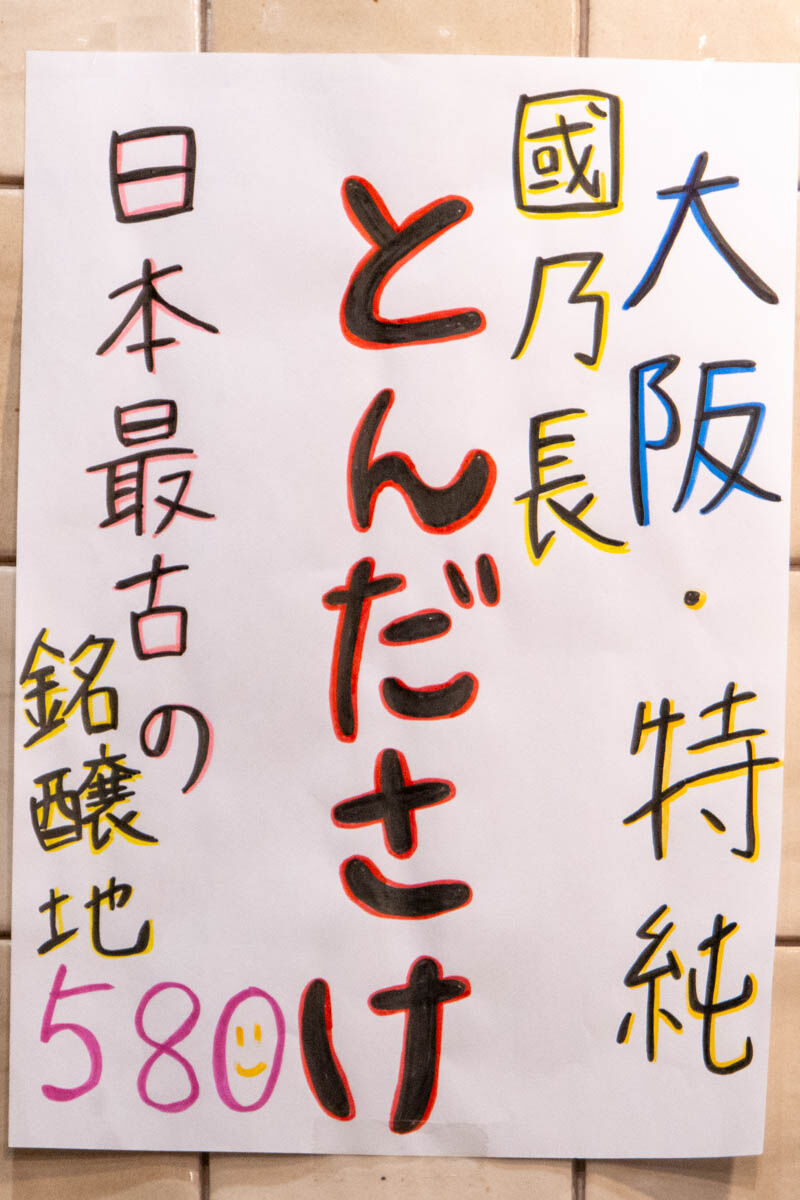 大阪・特純
國乃長
とんださけ
日本最古の
銘醸地
580